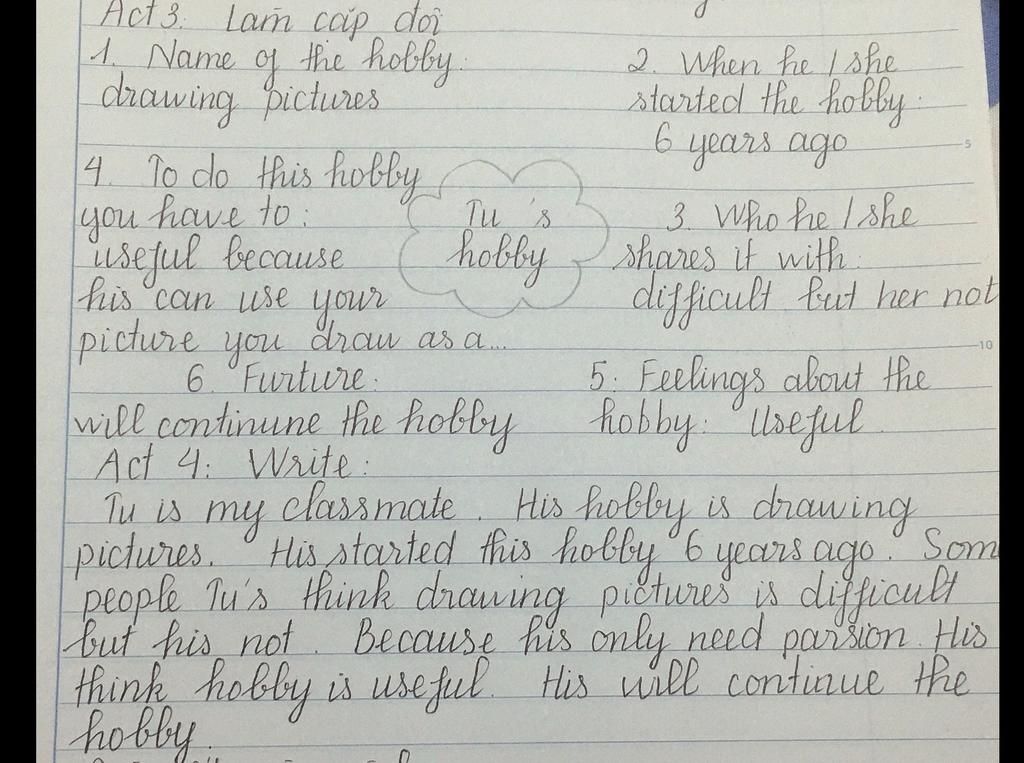 Act 3: Làm cặp đôi
1. Name of the hobby:
drawing pictures
2. When he / she
started the hobby:
6 years ago
4. To do this hobby
you have to:
useful because
his can use your
picture you draw as a...
Tu 's
hobby
3. Who he / she
shares it with:
difficult but her not
6. Furture:
will continune the hobby
5: Feelings about the
hobby: Useful
Act 4: Write:
Tu is my classmate. His hobby is drawing
pictures. His started this hobby 6 years ago. Som
people Tu's think drawing pictures is difficult
but his not. Because his only need parsion. His
think hobby is useful. His will continue the
hobby.
5
10